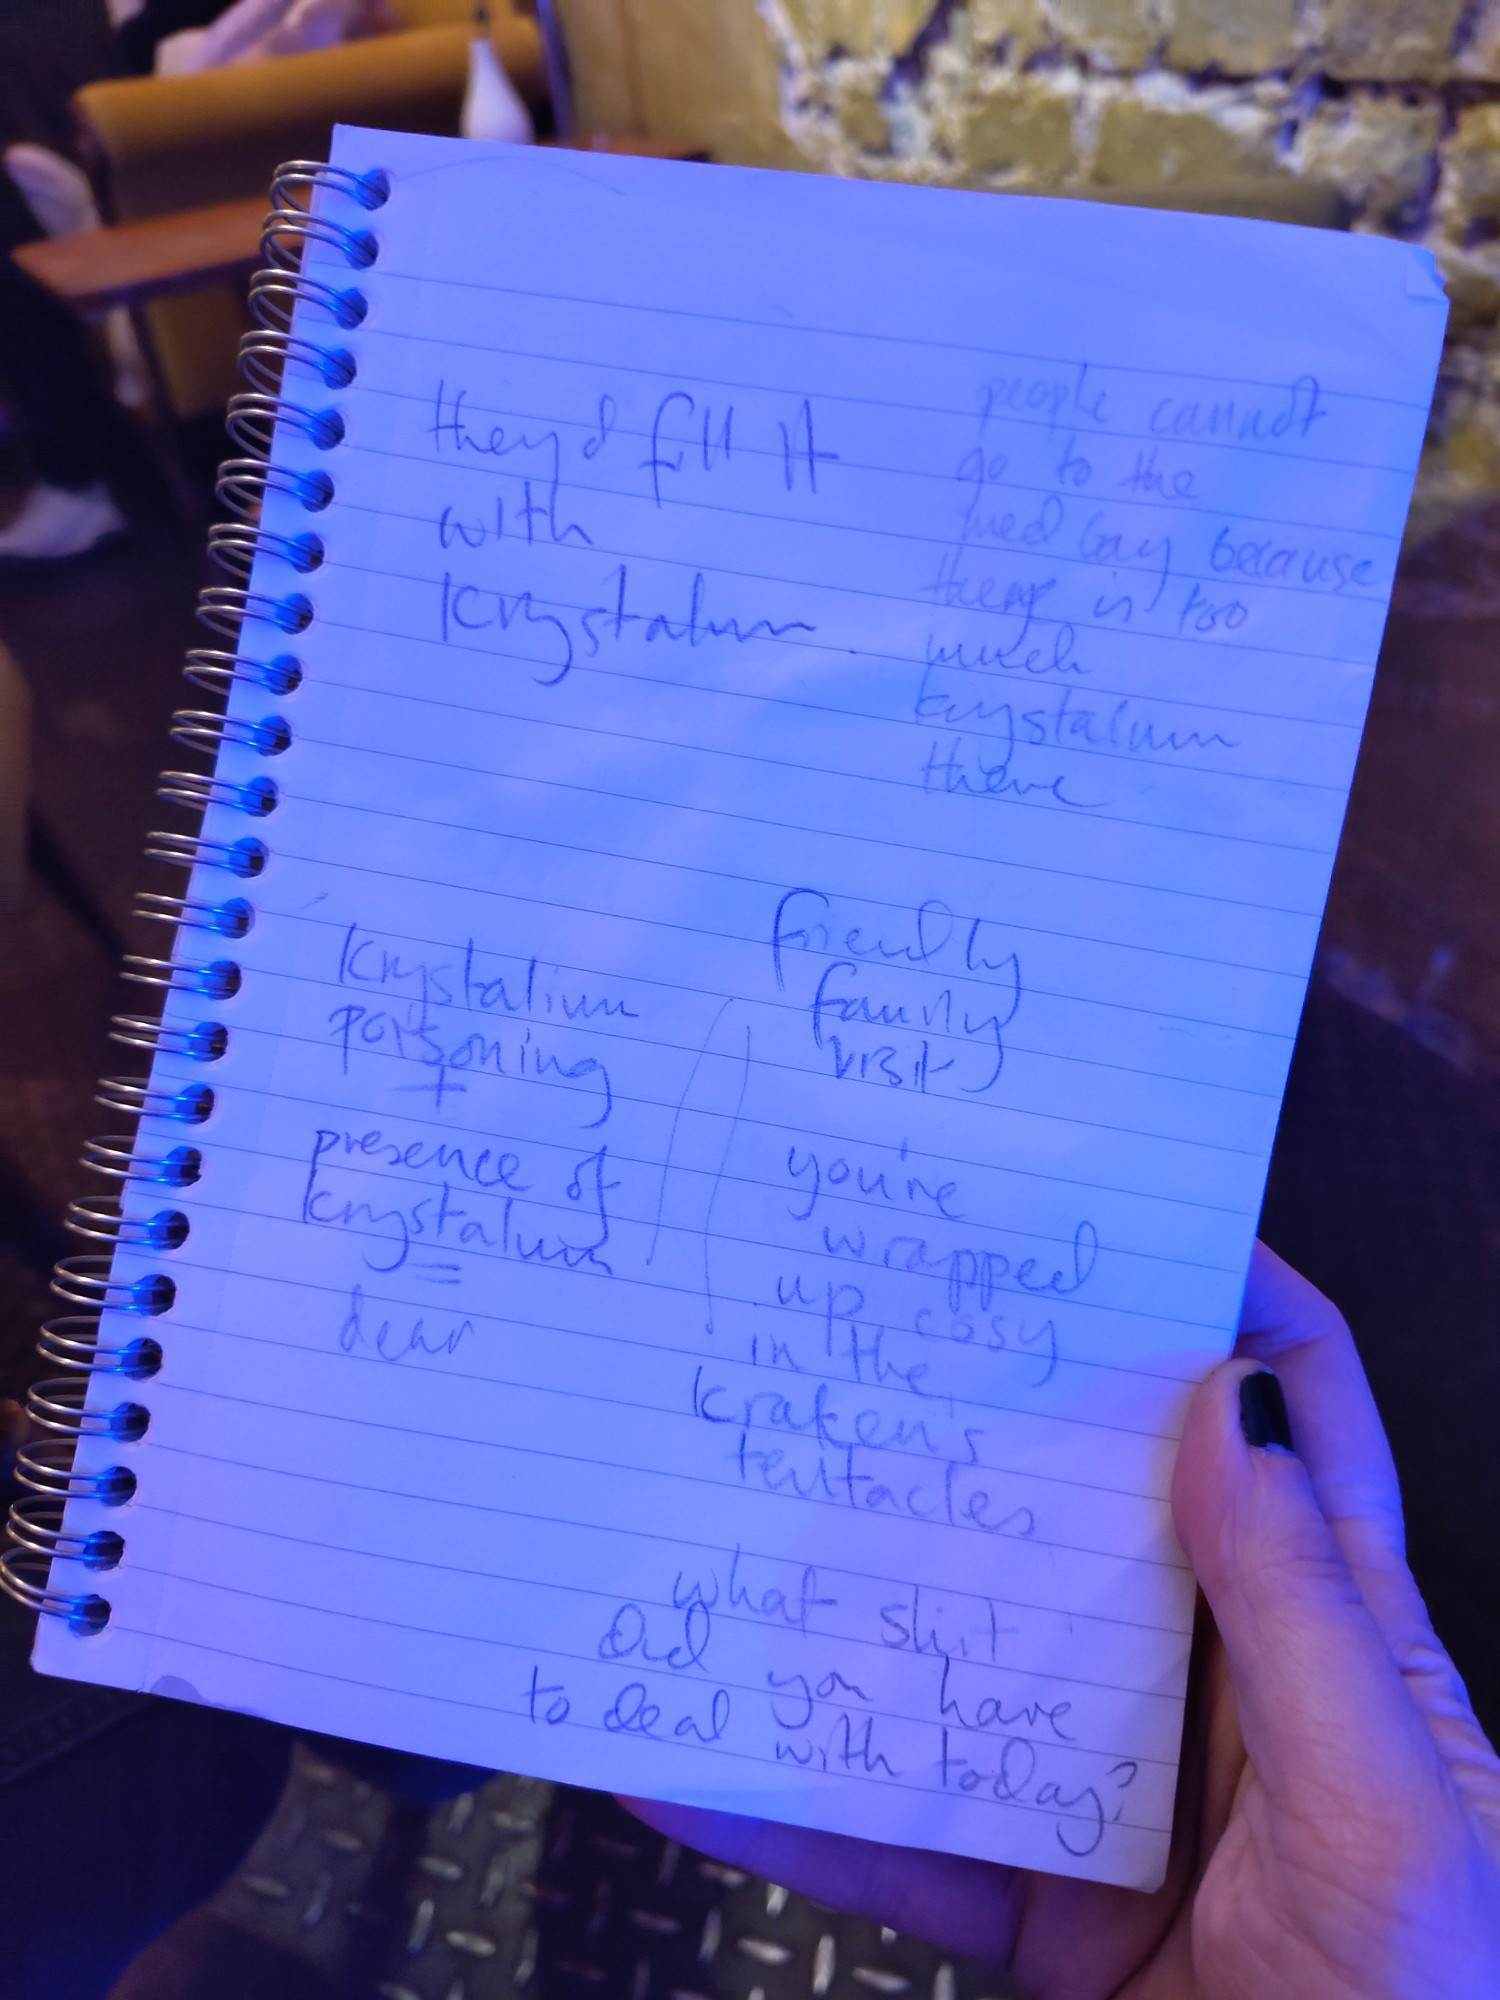 they'd fill it
with
krystalum.
people cannot
go to the
med bay because
there is too
much
krystalum
there
krystalium
poisoning
+
presence of
krystalum
=
dear
friendly
family
visit
you're
wrapped
up cosy
in the
kraken's
tentacles
what shit
did you have
to deal with today?